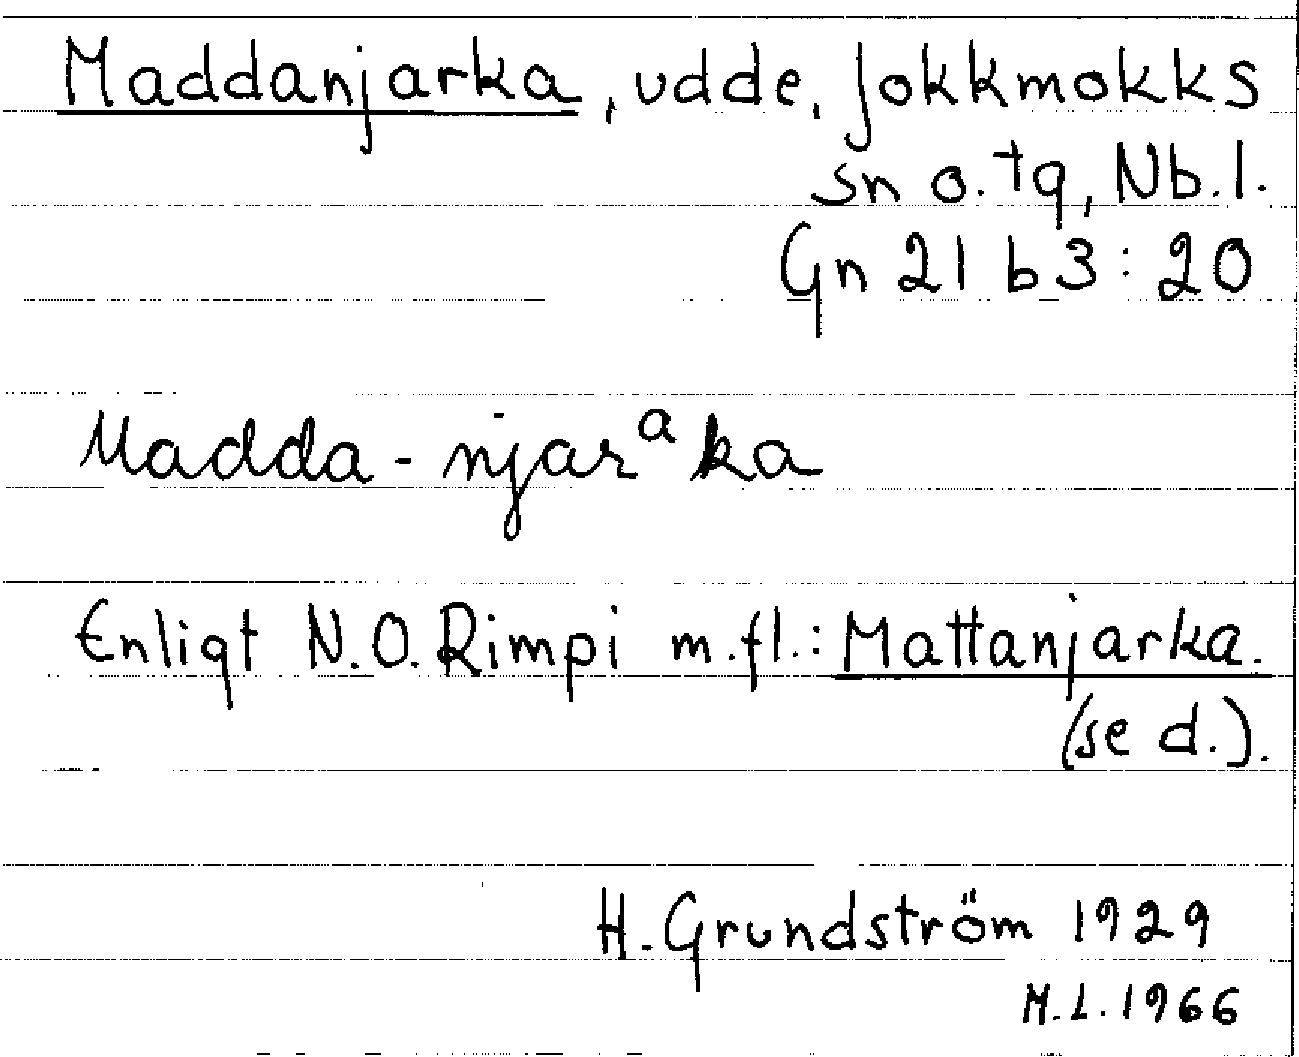 Maddanjarka, udde, Jokkmokks
sn o. tg, Nb. l.
Gn 21 b 3 : 20
Madda - njarᵃka
Enligt N.O. Rimpi m.fl.: Mattanjarka.
(se d.).
H. Grundström 1929
M.L. 1966